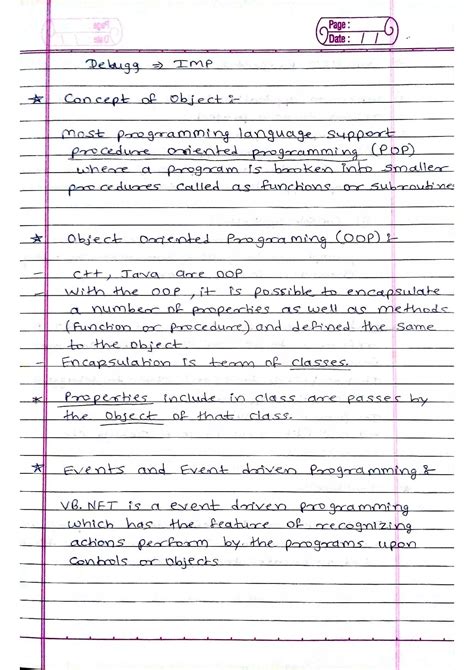 Page :
Date : / /
Debugg ⇒ IMP
☆ Concept of Object :-
Most programming language support
procedure oriented programming (POP)
where a program is broken into smaller
procedures called as functions or subroutine
☆ Object Oriented Programing (OOP) :-
- C++, Java are OOP
- With the OOP, it is possible to encapsulate
a number of properties as well as methods
(Function or procedure) and defined the same
to the object.
- Encapsulation is term of classes.
* Properties include in class are passes by
the Object of that class.
☆ Events and Event driven Programming :-
VB.NET is a event driven programming
which has the feature of recognizing
actions perform by the programs upon
controls or objects